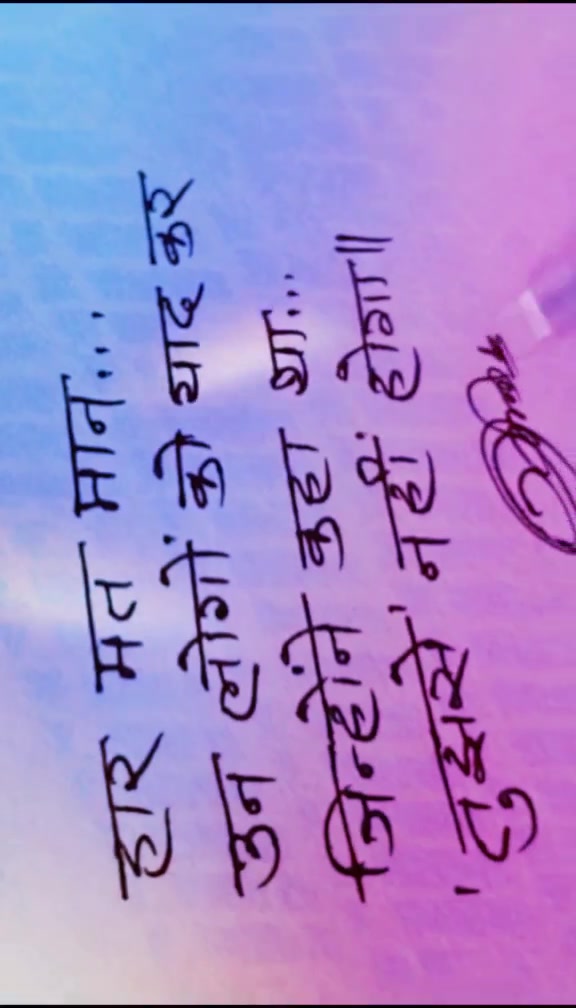 हार मत मान...
उन लोगों को याद कर
जिन्होंने कहा था...
'तुझसे' नहीं होगा॥